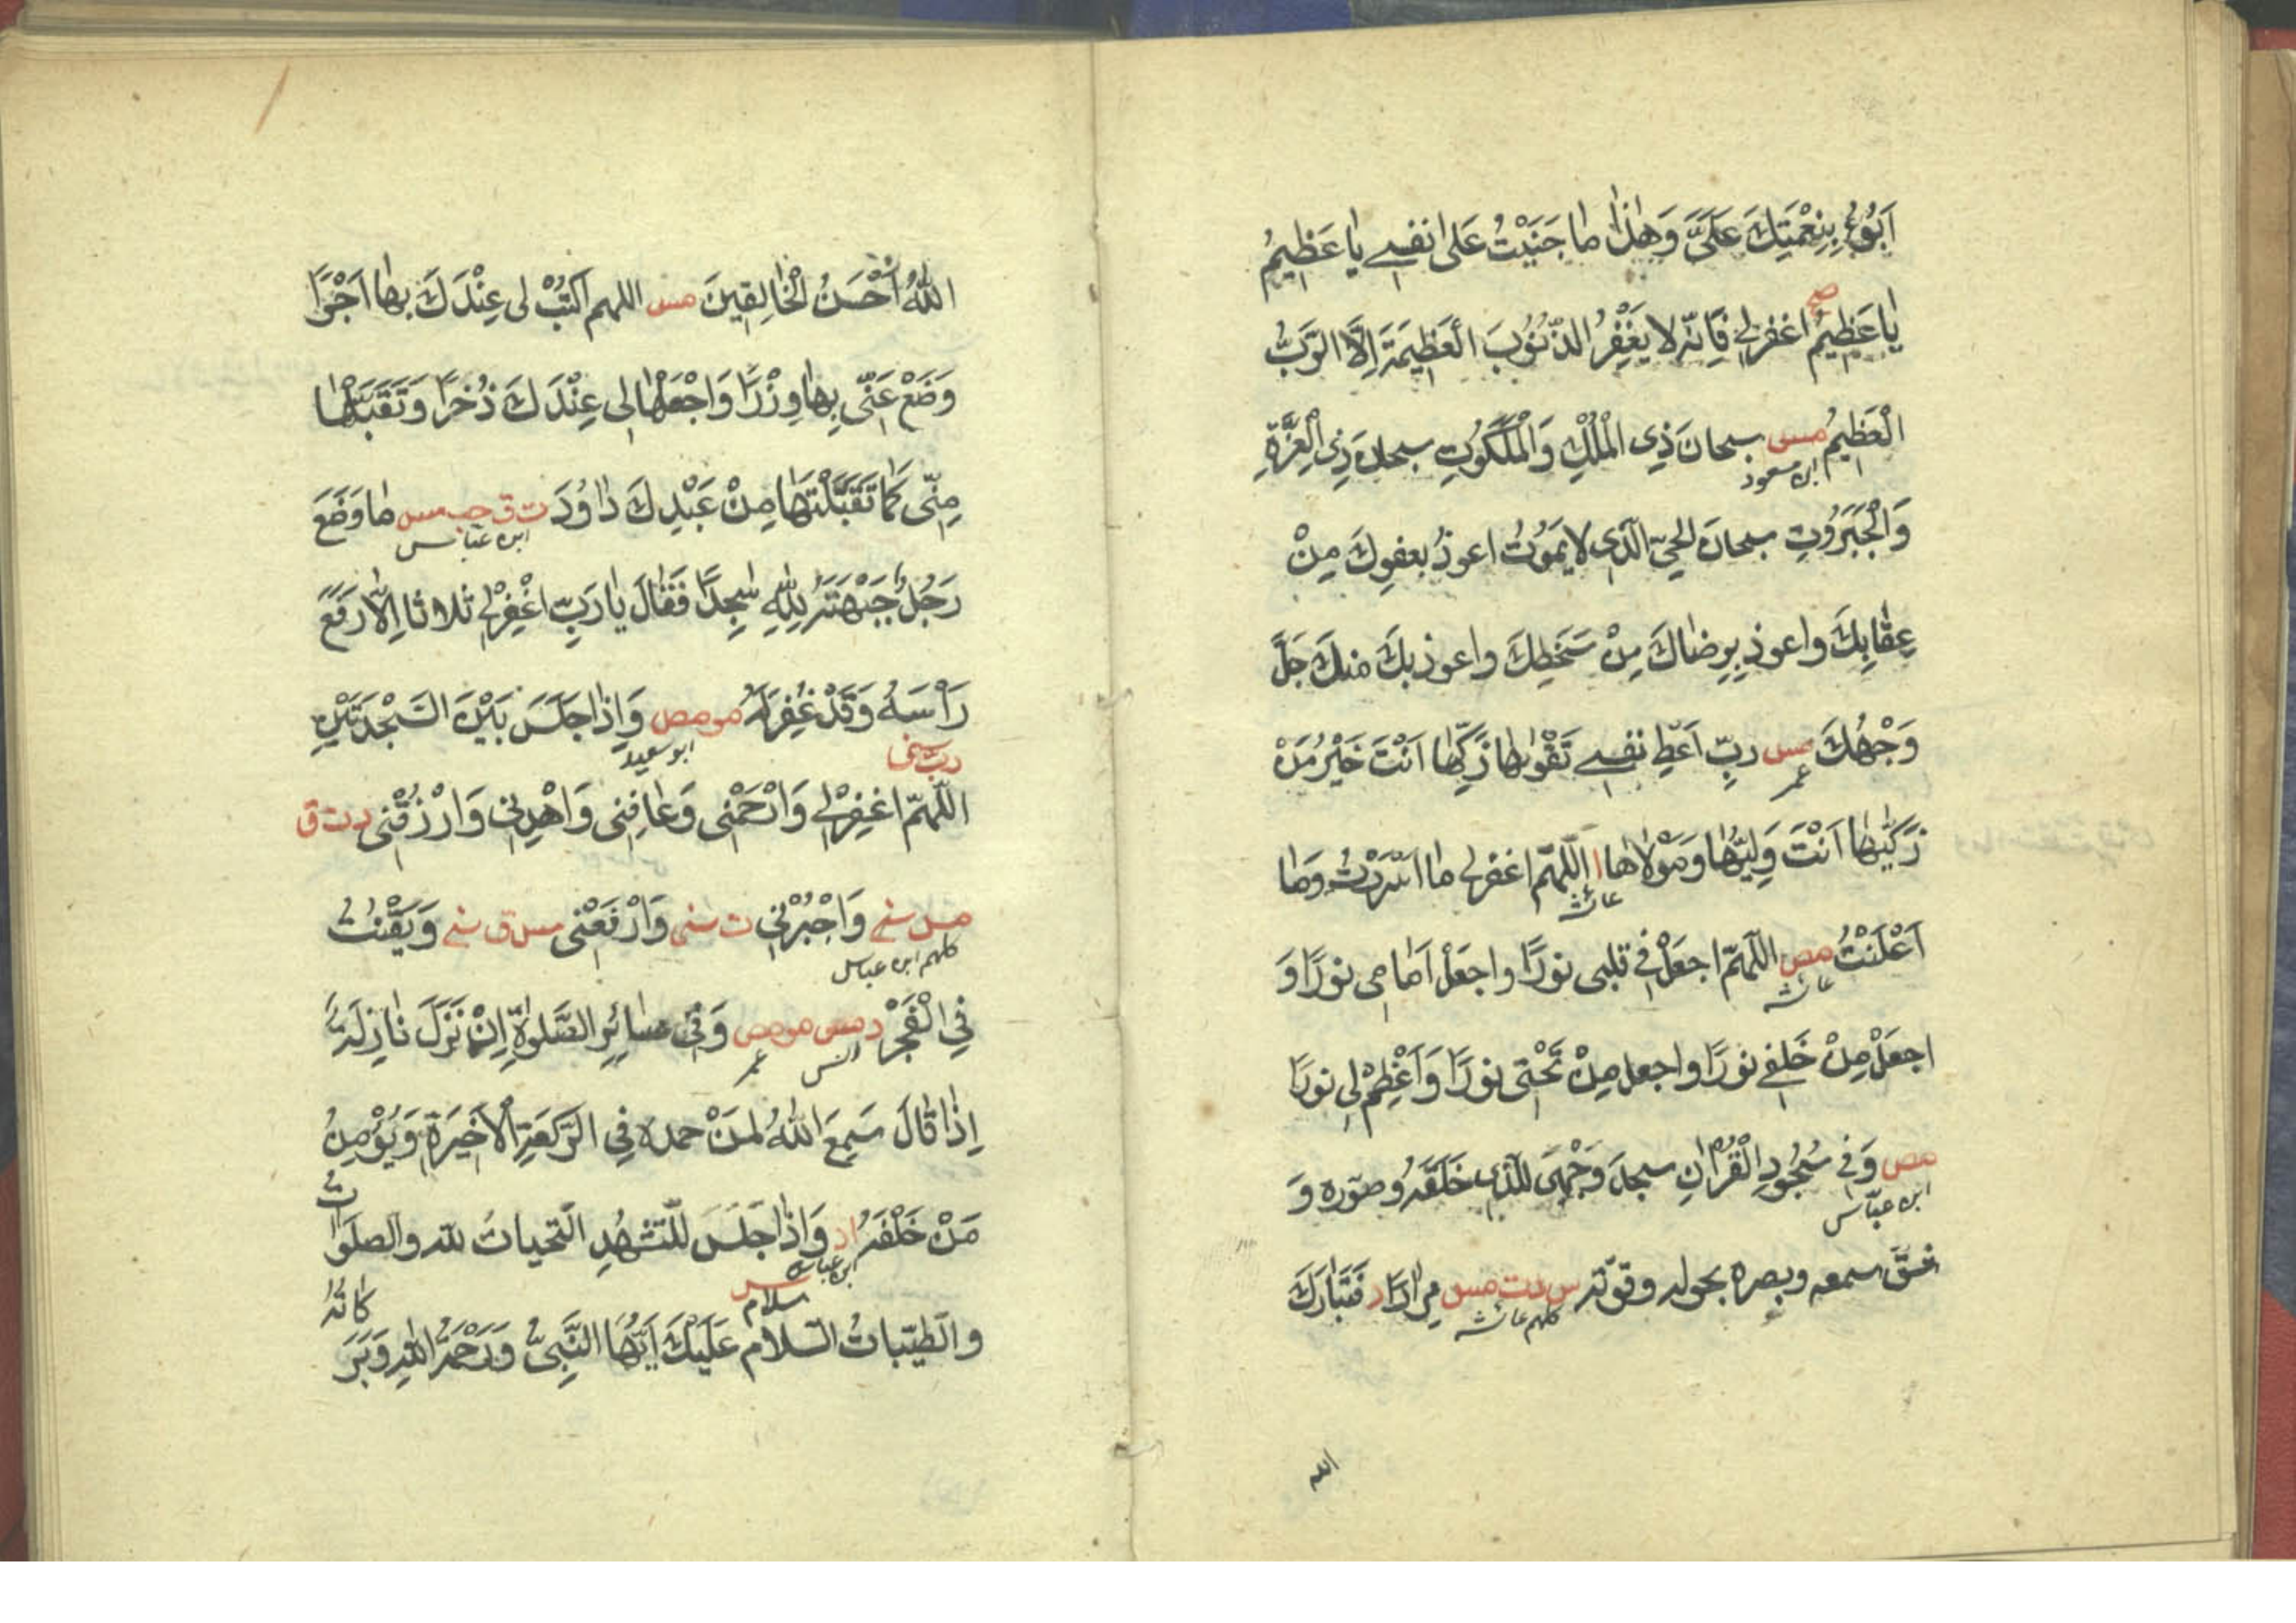 اَبُوْءُ بِنِعْمَتِكَ عَلَىَّ وَهٰذٰا مٰا جَنَيْتُ عَلىٰ نفسے يٰا عَظِيمُ
صح
يٰا عَظِيمُ اغفرلي فَاِنّه لا يَغْفِرُ الذّنُوُبَ اْلعَظِيمَةَ اِلَّا الرَّبُّ
الْعَظِيمُ مس سبحانَ ذِي الْمُلْكِ وَالْمَلَكُوُتِ سبحانَ ذِي الْعِزَّةِ
ابن مسعود
وَالْجَبَرُوُتِ سبحانَ الحيّ الَّذى لا يَمَوُتُ اعوذُ بعفوِكَ مِنْ
عِقٰابِكَ واعوذ بِرِضٰاكَ مِنْ سَخَطِكَ واعوذ بكَ منكَ جَلَّ
وَجْهُكَ مس ربِّ اَعْطِ نفسے تَقْوٰىهٰا زَكِّهٰا اَنْتَ خَيْرُ مَنْ
عمر
زَكّيٰهٰا اَنْتَ وَلِيُّهٰا وَمَوْلاٰهٰا ا اللّهمّ اغفرلى مٰا اَسْرَرْتُ وَمٰا
عائشه
اَعْلَنْتُ مص اللّهمّ اجعَلْ فے قلبى نورًا واجعَلْ اَمٰامِى نورًا وَ
عائشه
اجعَلْ مِنْ خَلفے نورًا واجعل مِنْ تَحْتى نورًا وَاَعْظِمْ لِى نورًا
مص وَفے سُجُودِ الْقُرْاٰنِ سجدَ وَجْهِىَ للّذى خَلَقَهُ وصوّره وَ
ابن عبّاس
شقَّ سمعه وبصره بحوله وقوّته س د ت مس مِرٰارًا د فَتَبٰارَكَ
كلهم عائشه
الله
اللّٰهُ اَحْسَنُ الْخٰالِقِينَ مس اللهم اكتُبْ لى عِنْدَكَ بهٰا اَجْرًا
وَضَعْ عَنّى بِهٰا وِزْرًا وَاجْعَلْهٰا لِى عِنْدَكَ ذُخرًا وَتَقَبَّلْهٰا
مِنّى كَمٰا تَقَبَّلْتَهٰا مِنْ عَبْدِكَ دٰاوُدَ ت ق حب مس مٰا وَضَعَ
ابن عبّاس
رَجُلٌ جَبْهَتَهُ لِلّٰهِ سٰجِدًا فَقٰالَ يٰا رَبِّ اغْفِرْلى ثلاثا اِلاّٰ رَفَعَ
رَاْسَهُ وَقَدْ غُفِرَ لَهُ مو مص وَاِذٰا جَلَسَ بَيْنَ السَّجْدَتَيْنِ
ابو سعيد
ربّ سنى
اللّهمّ اغفِرْلے وَارْحَمْنى وَعٰافِنى وَاهْدِنى وَارْزُقْنى د ت ق
مس سنے وَاجْبُرْنى ت سنى وَارْفَعْنى مس ق سنے وَيَقْنُتُ
كلهم ابن عباس
فِي الْفَجْرِ د مس مو مص وَفے سٰائِرِ الصَّلَوٰةِ اِنْ نَزَلَ نٰازِلَةٌ
انس
عمر
اِذٰا قٰالَ سَمِعَ اللّٰهُ لمنْ حمده فِي الرَّكعَةِ الْاَخِيرَةِ وَيُؤْمِنُ
مَنْ خَلْفَهُ ا د وَاِذٰا جَلَسَ لِلتَّشَهُّدِ التّحياتُ للّه والصلَوٰاتُ
ابن عباس
س
سلام
والطيّباتُ السّلام عَلَيْكَ اَيُّهَا النَّبِىُّ وَرَحْمَةُ اللّهِ وَبَرَكٰاتُهُ